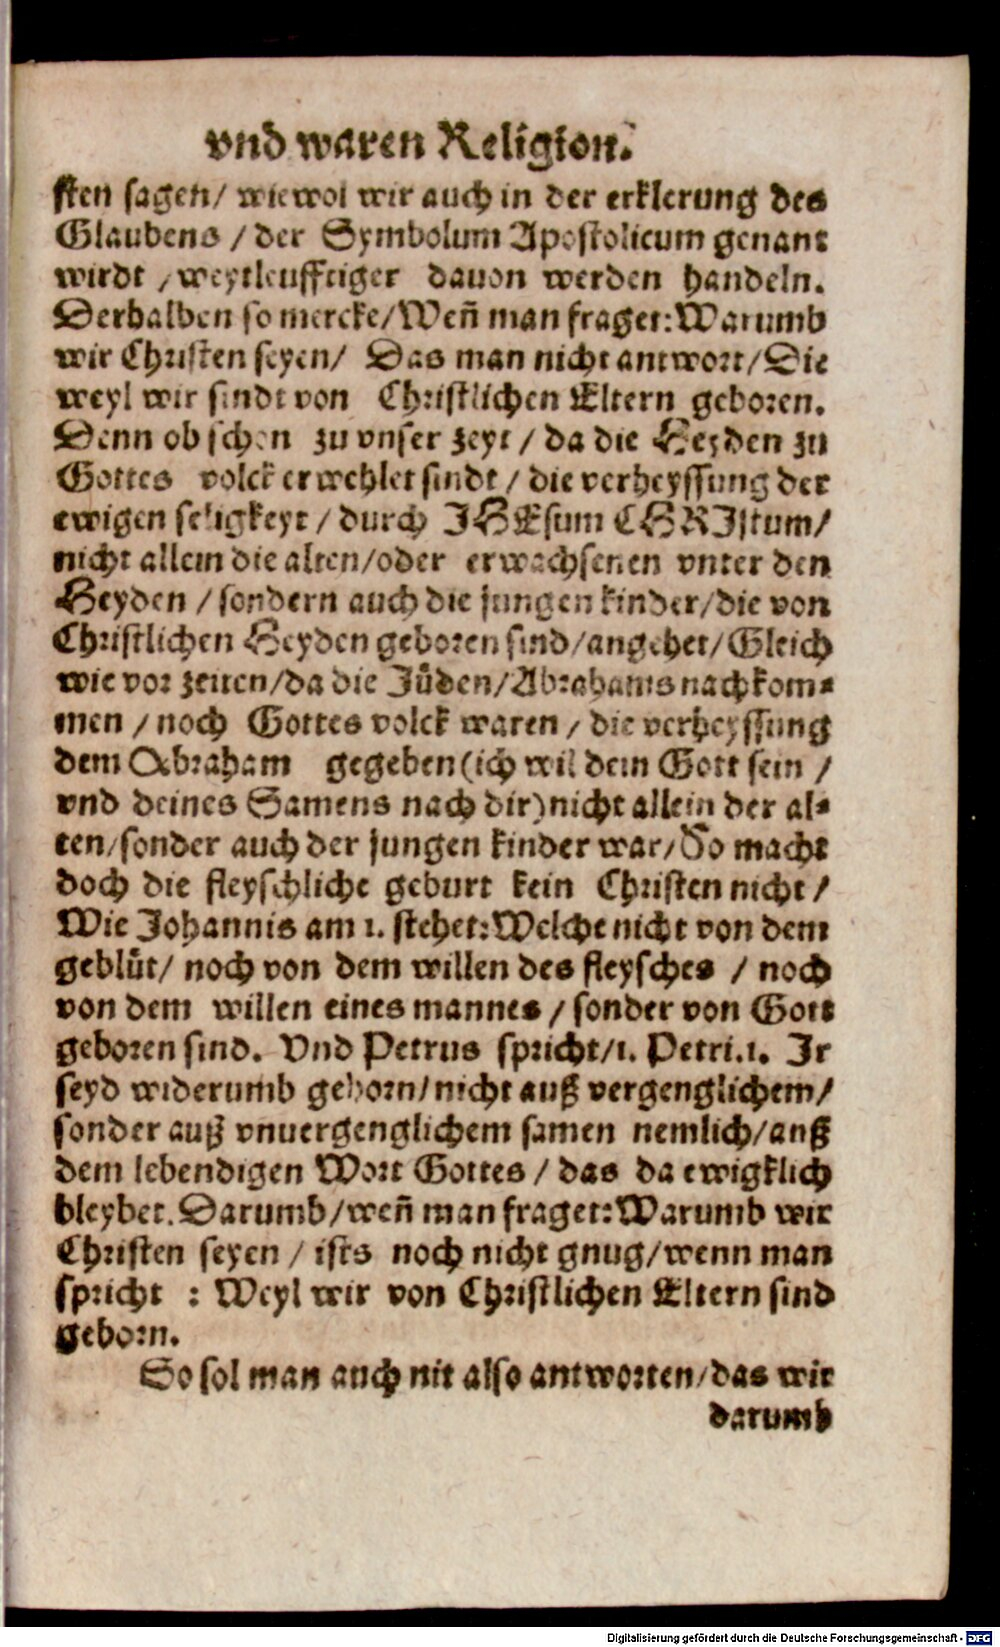 vnd waren Religion.
sten sagen/ wiewol wir auch in der erklerung des
Glaubens / der Symbolum Apostolicum genant
wirdt / weytleufftiger dauon werden handeln.
Derhalben so mercke/ Weñ man fraget: Warumb
wir Christen seyen/ Das man nicht antwort/ Die
weyl wir sindt von Christlichen Eltern geboren.
Denn ob schon zu vnser zeyt / da die Heyden zu
Gottes volck erwehlet sindt / die verheyssung der
ewigen seligkeyt / durch JHEsum CHRIstum/
nicht allein die alten/oder erwachsenen vnter den
Heyden / sondern auch die jungen kinder/die von
Christlichen Heyden geboren sind/angehet/Gleich
wie vor zeiten/da die Jüden/Abrahams nachkom-
men / noch Gottes volck waren / die verheyssung
dem Abraham gegeben(ich wil dein Gott sein /
vnd deines Samens nach dir)nicht allein der al-
ten/sonder auch der jungen kinder war/So macht
doch die fleyschliche geburt kein Christen nicht/
Wie Johannis am 1. stehet: Welche nicht von dem
geblüt/ noch von dem willen des fleysches / noch
von dem willen eines mannes / sonder von Gott
geboren sind. Vnd Petrus spricht/1. Petri.1. Ir
seyd widerumb geborn/nicht auß vergenglichem/
sonder auß vnuergenglichem samen nemlich/auß
dem lebendigen Wort Gottes / das da ewigklich
bleybet. Darumb/weñ man fraget: Warumb wir
Christen seyen / ists noch nicht gnug/wenn man
spricht : Weyl wir von Christlichen Eltern sind
geborn.
So sol man auch nit also antworten/das wir
darumb
Digitalisierung gefördert durch die Deutsche Forschungsgemeinschaft - DFG